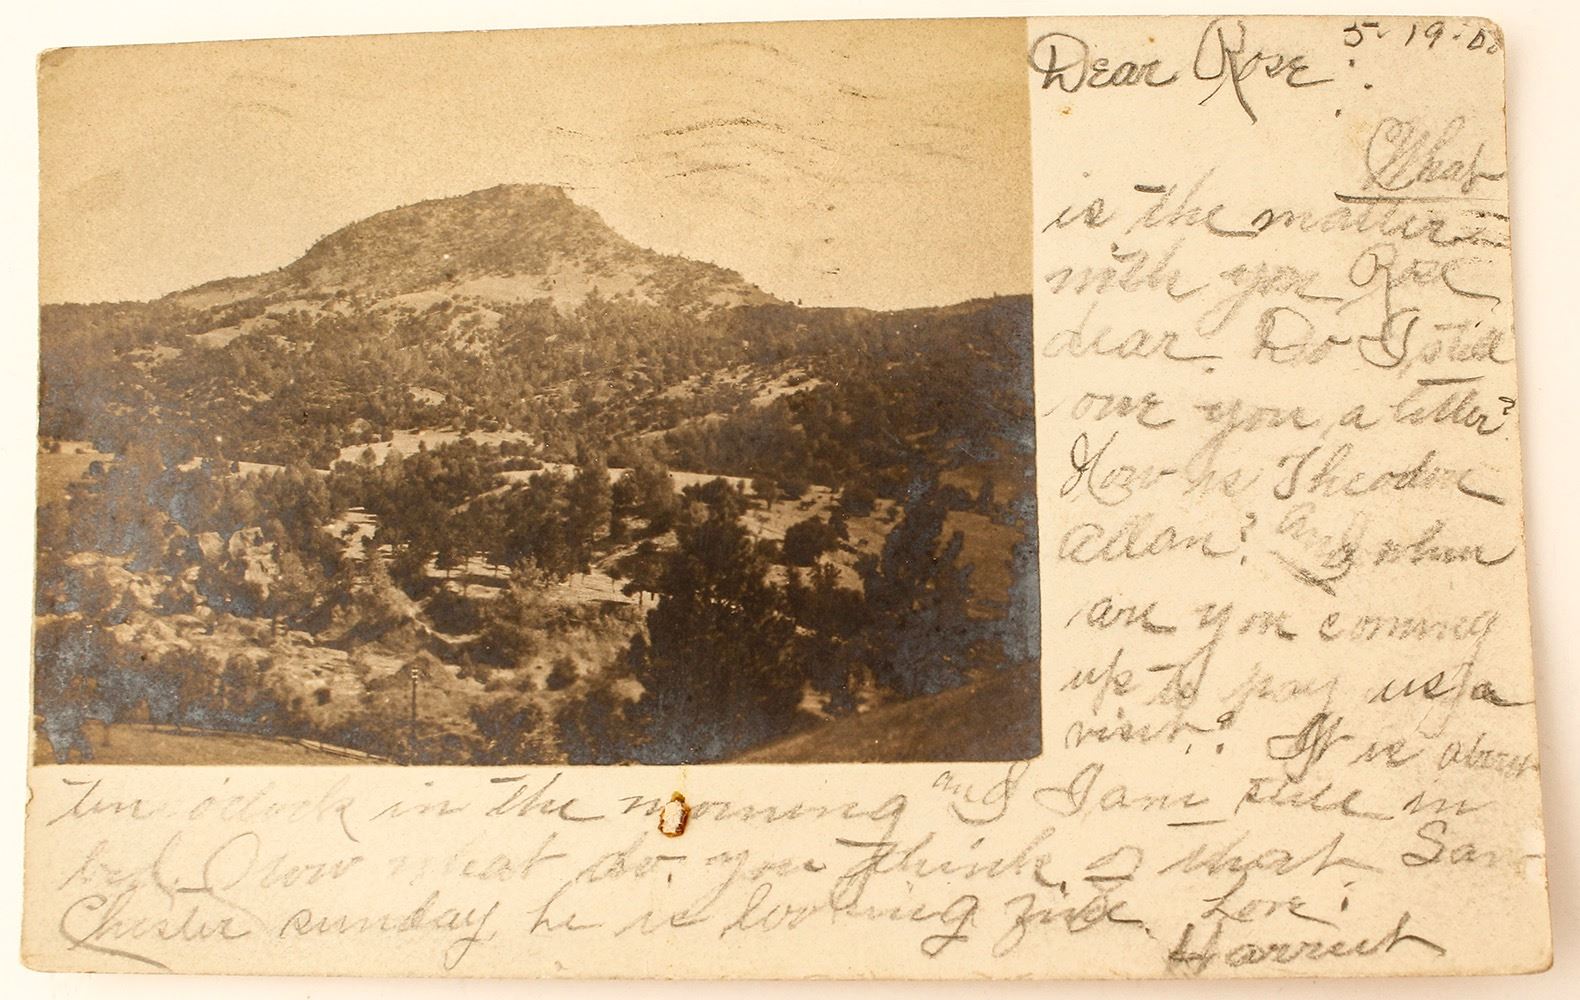 5. 19.
Dear Rose:
What
is the matter
with you Rose
dear. Do I still
owe you a letter?
How is Theodore
Allan? And when
are you coming
up to pay us a
visit? It is about
ten o'clock in the morning and I am still in
bed. Now what do you think of that. Saw
Chester sunday, he is looking fine. Love.
Harriet